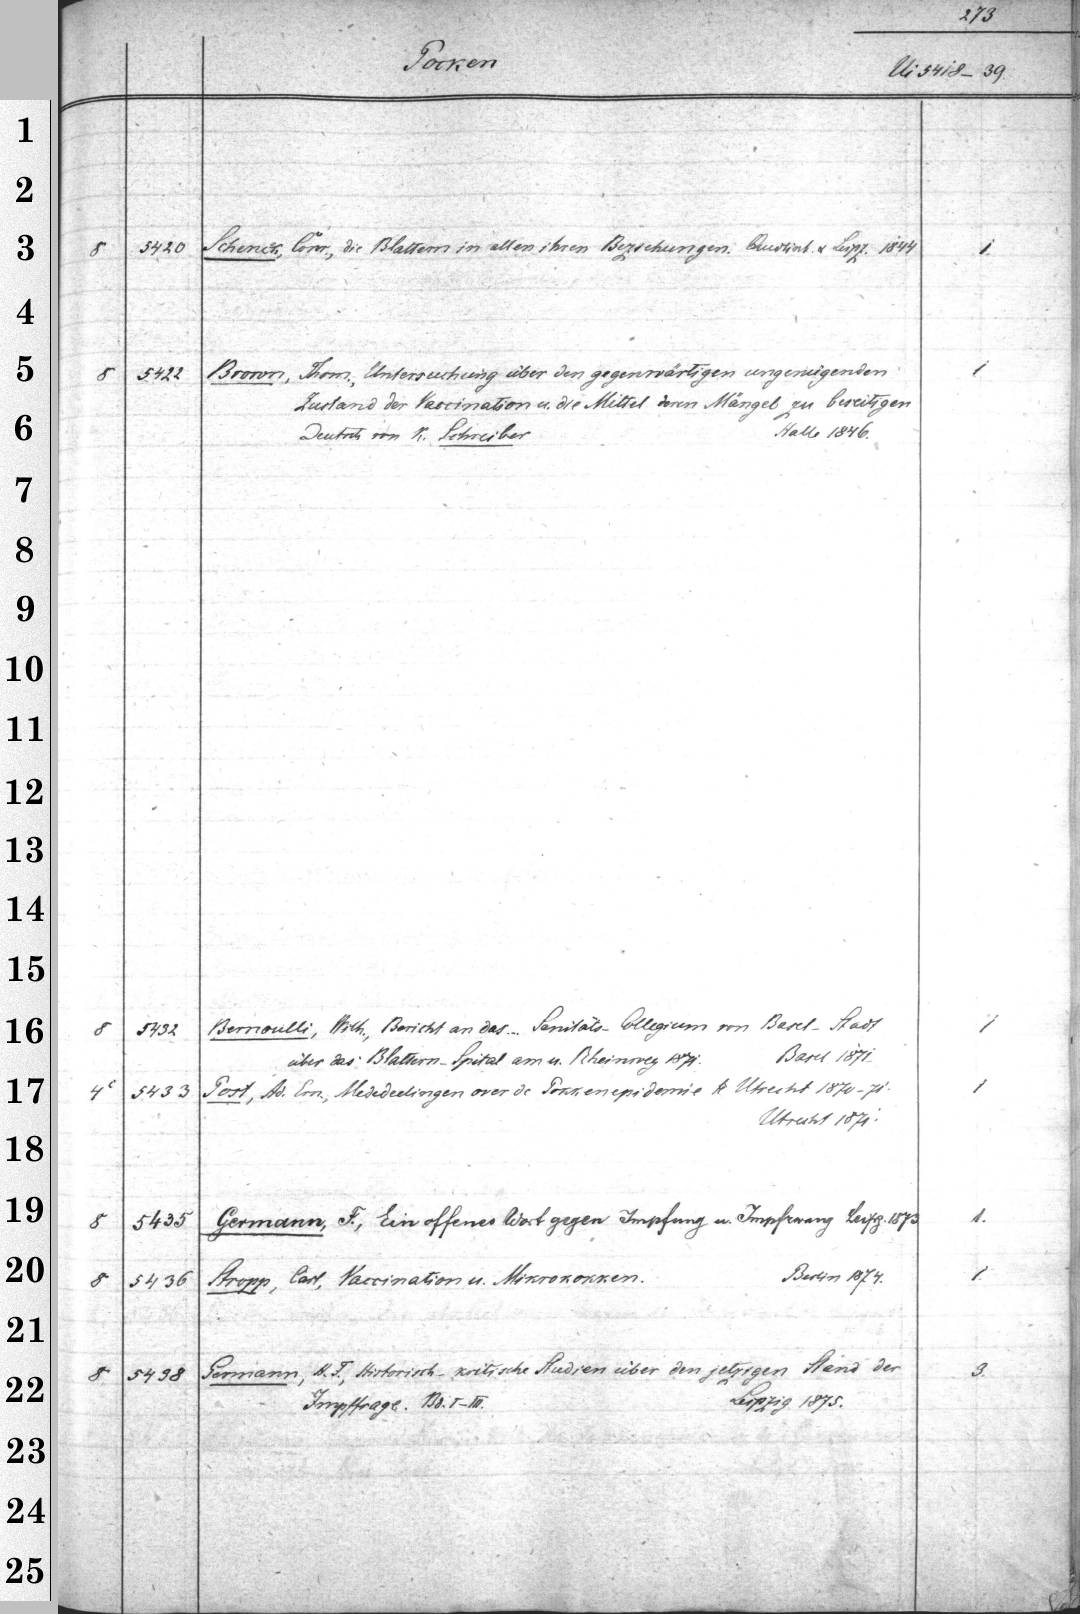 273
Pocken
Ui 5418-39.
1
2
3
8 5420 Schenck, Conr., die Blattern in allen ihren Beziehungen. Quedlinb. & Leipz. 1844 1.
4
5
8 5422 Brown, Thom., Untersuchung über den gegenwärtigen ungenügenden 1
Zustand der Vaccination u. die Mittel deren Mängel zu beseitigen
6
Deutsch von K. Schreiber Halle 1846.
7
8
9
10
11
12
13
14
15
16
8 5432 Bernoulli, Wilh., Bericht an das... Sanitäts-Collegium von Basel-Stadt 1
über das Blattern-Spital am u. Rheinweg 1871. Basel 1871.
17
4° 5433 Post, Ad. Ern., Mededeelingen over de Pokkenepidemie te Utrecht 1870-71. 1
Utrecht 1871.
18
19
8 5435 Germann, F., Ein offenes Wort gegen Impfung u. Impfzwang Leipz. 1873 1.
20
8 5436 Stropp, Carl, Vaccination u. Mikrokokken. Berlin 1874. 1.
21
22
8 5438 Germann, H. F., Historisch-kritische Studien über den jetzigen Stand der 3.
Impffrage. Bd. I-III. Leipzig 1875.
23
24
25